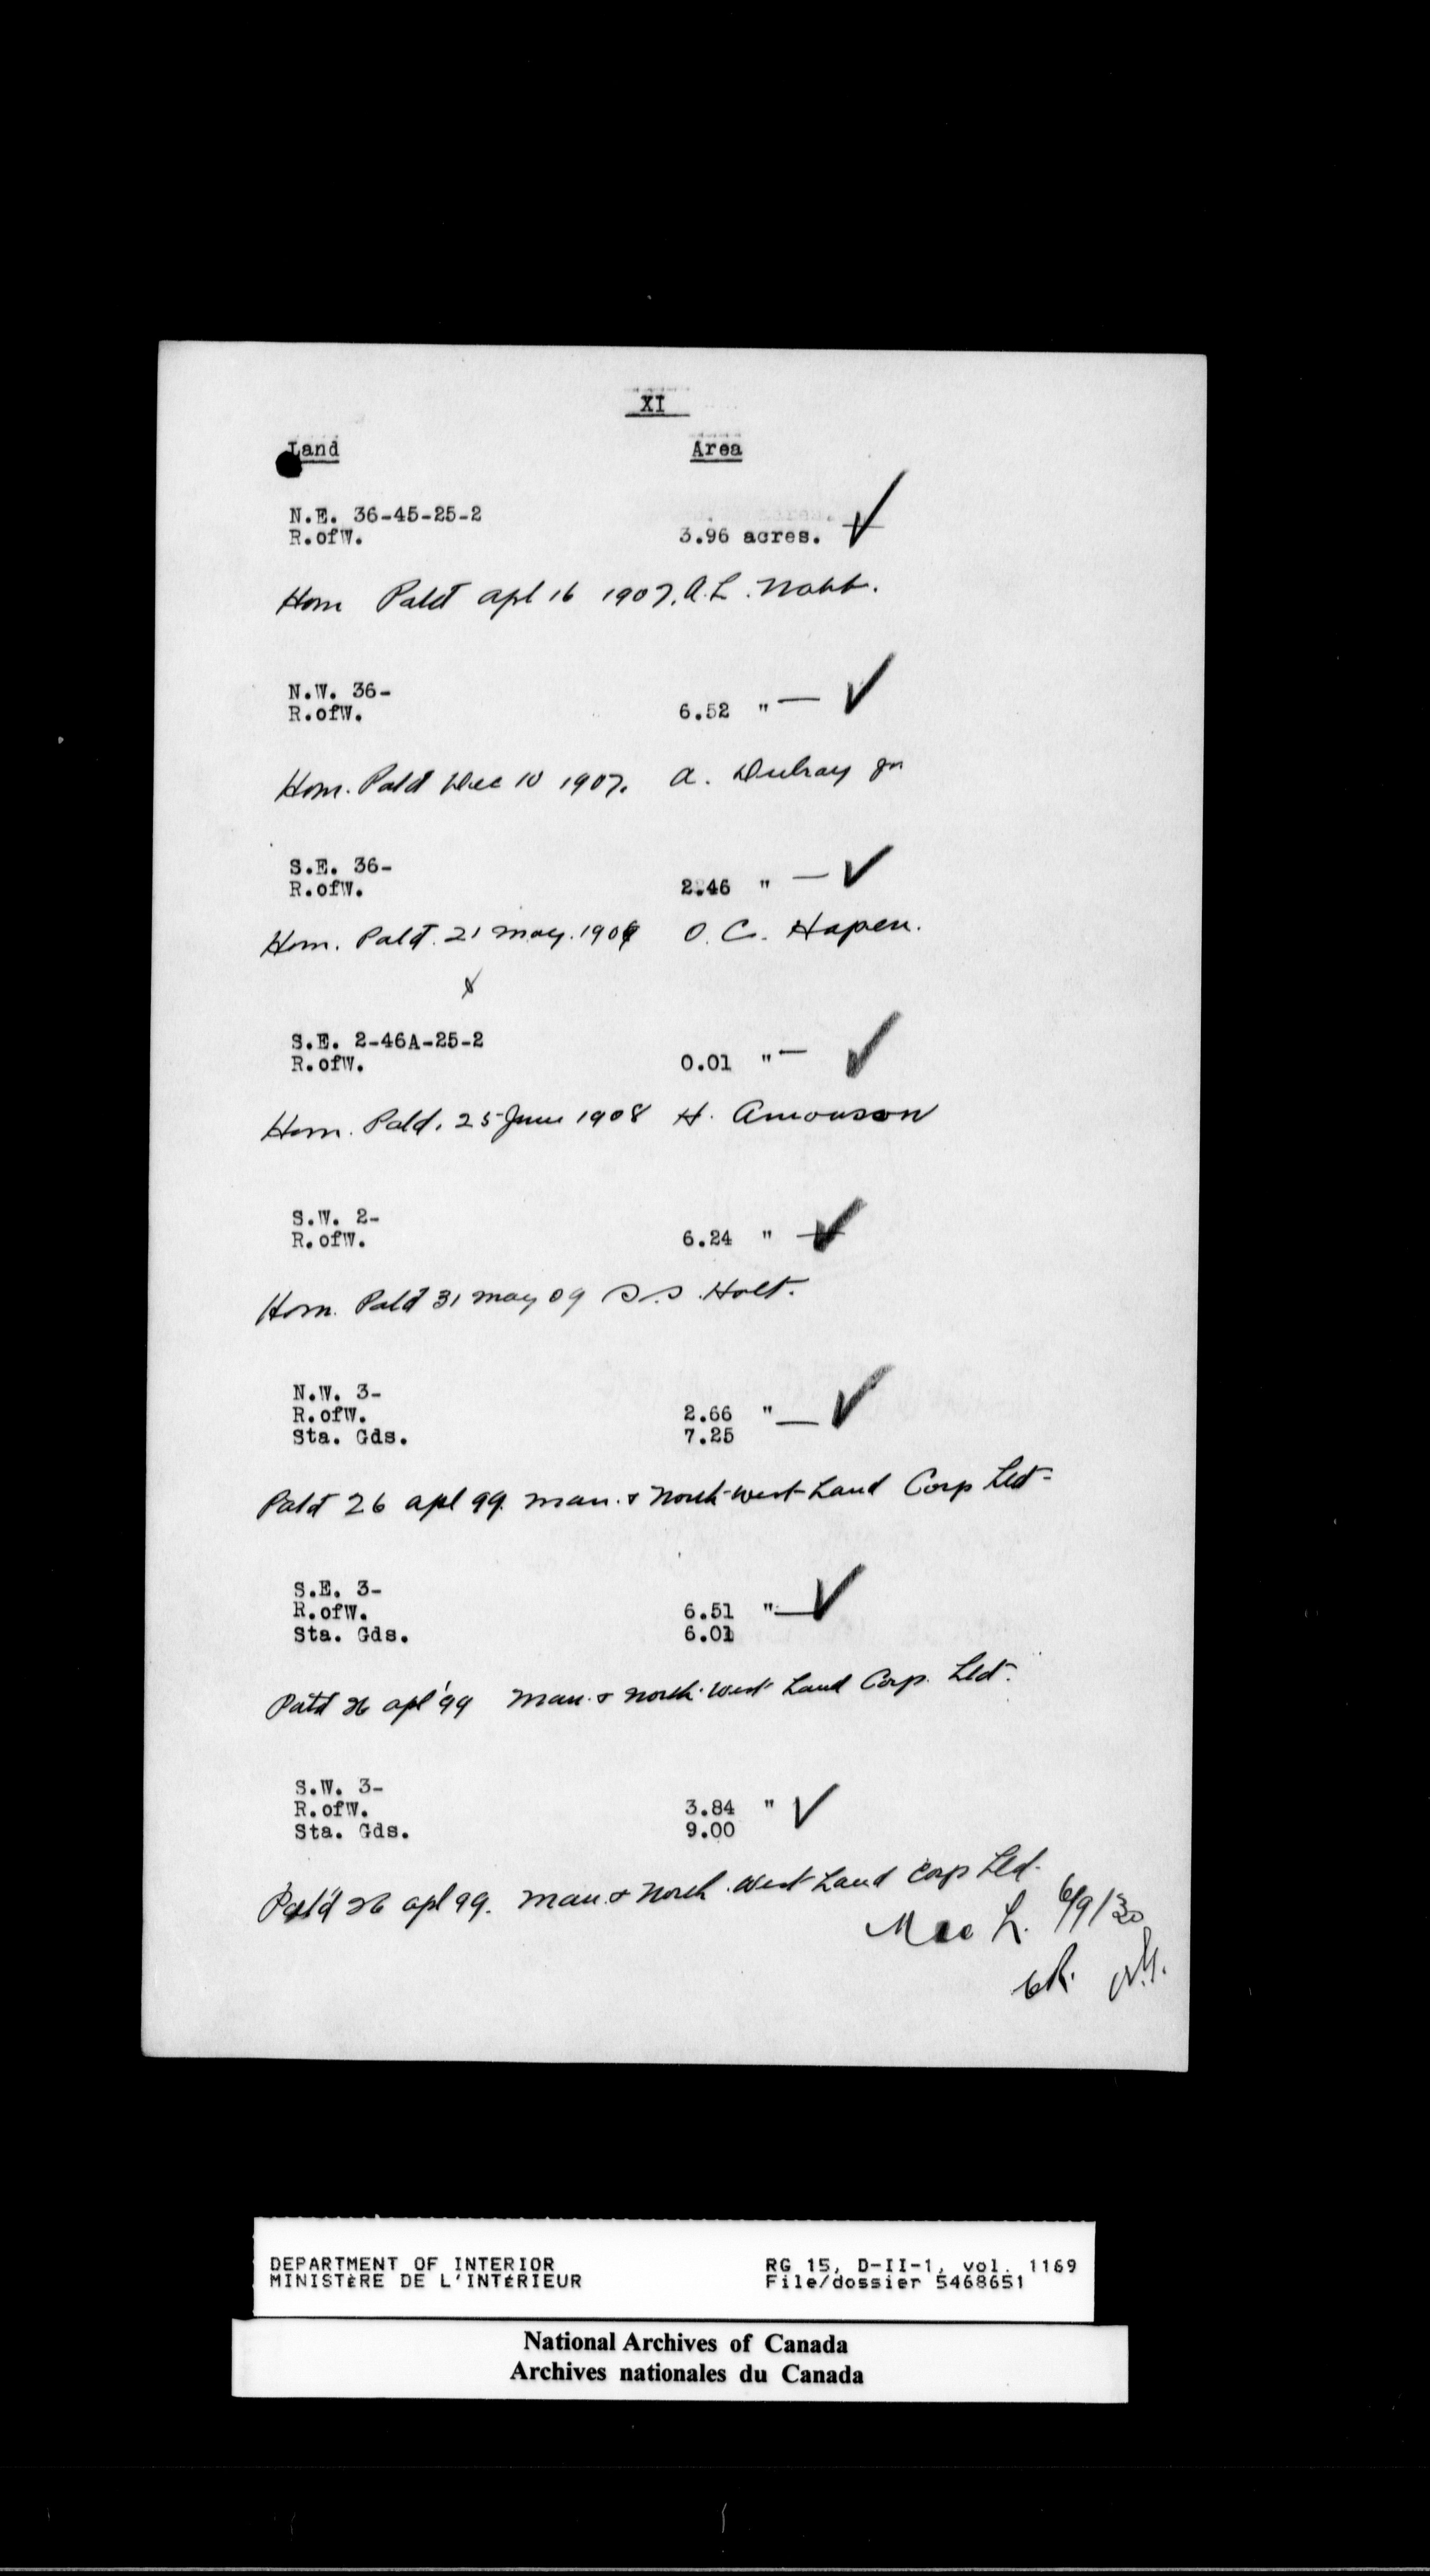 XI
Land Area
N.E. 36-45-25-2
R.ofW. 3.96 acres.
Hom Patd apl 16 1907. A.L.
N.W. 36-
R.ofW. 6.52 "
Hom. Patd Dec 10 1907. A. Jr
S.E. 36-
R.ofW. 2.46 "
Hom. Patd. 21 May. 1909 O. C. Hapen.
S.E. 2-46A-25-2
R.ofW. 0.01 "
Hom. Patd. 25 June 1908 H. Amonson
S.W. 2-
R.ofW. 6.24 "
Hom. Patd 31 May 09 S.S. Holt.
N.W. 3-
R.ofW. 2.66 "
Sta. Gds. 7.25
Patd 26 apl 99. Man. & North-West Land Corp Ltd-
S.E. 3-
R.ofW. 6.51 "
Sta. Gds. 6.01
Patd 26 apl '99 Man. & North-West Land Corp. Ltd-.
S.W. 3-
R.ofW. 3.84 "
Sta. Gds. 9.00
Pat'd 26 apl 99. Man. & North-West Land Corp Ltd-
6/9/30
DEPARTMENT OF INTERIOR RG 15, D-II-1, vol. 1169
MINISTÈRE DE L'INTÉRIEUR File/dossier 5468651
National Archives of Canada
Archives nationales du Canada